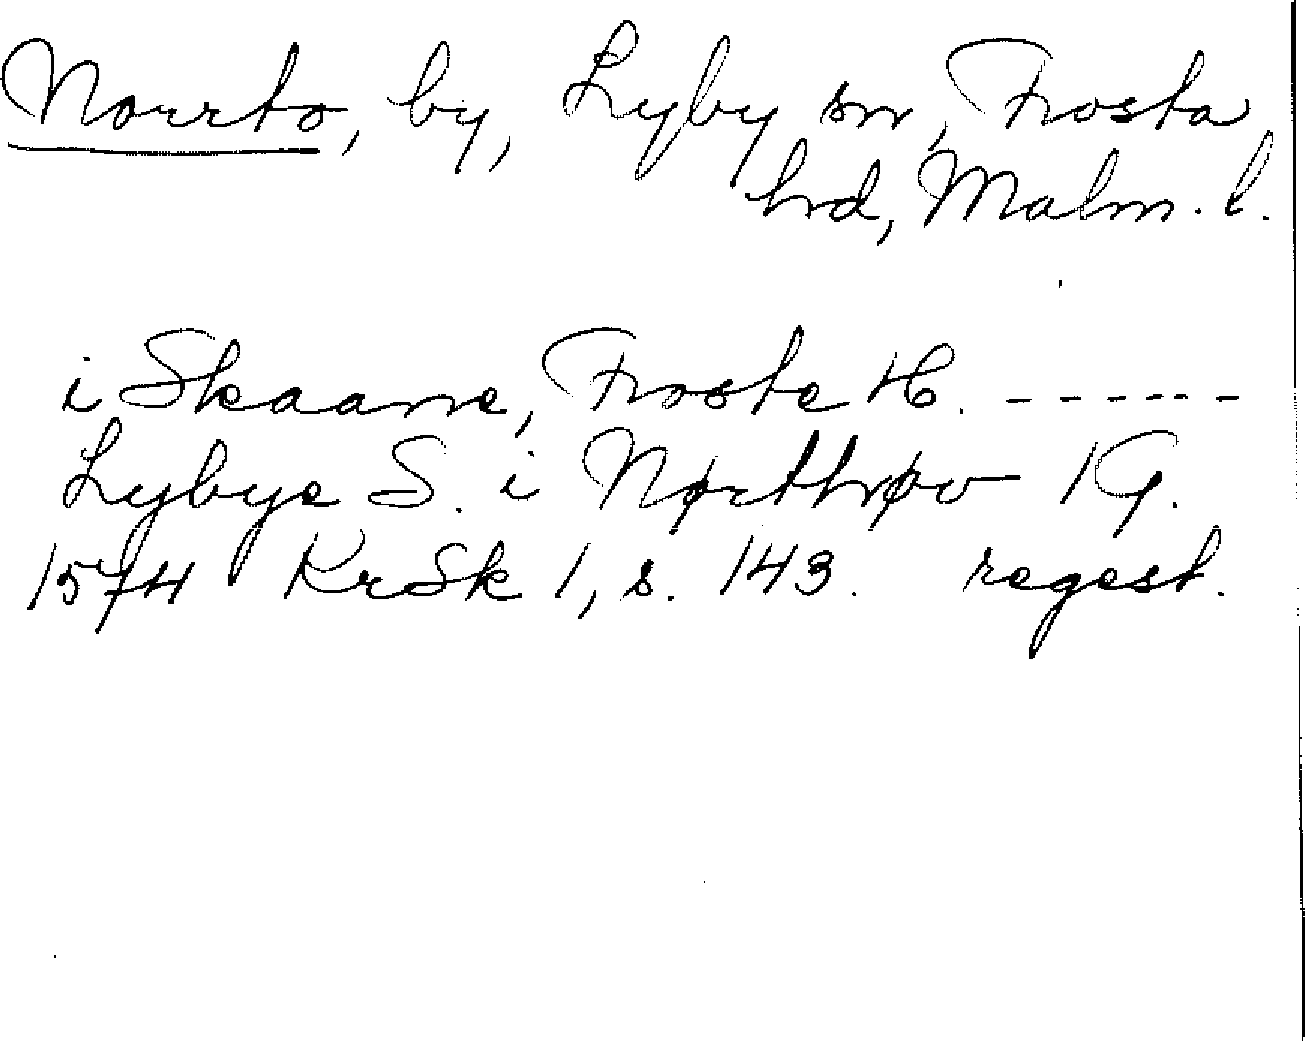 Norrto, by, Lyby sn, Frosta
hrd, Malm. l.
i Skaane, Froste H. ------
Lybye S. i Nørthrøv 1 G.
1574 KrSk 1, s. 143. regest.